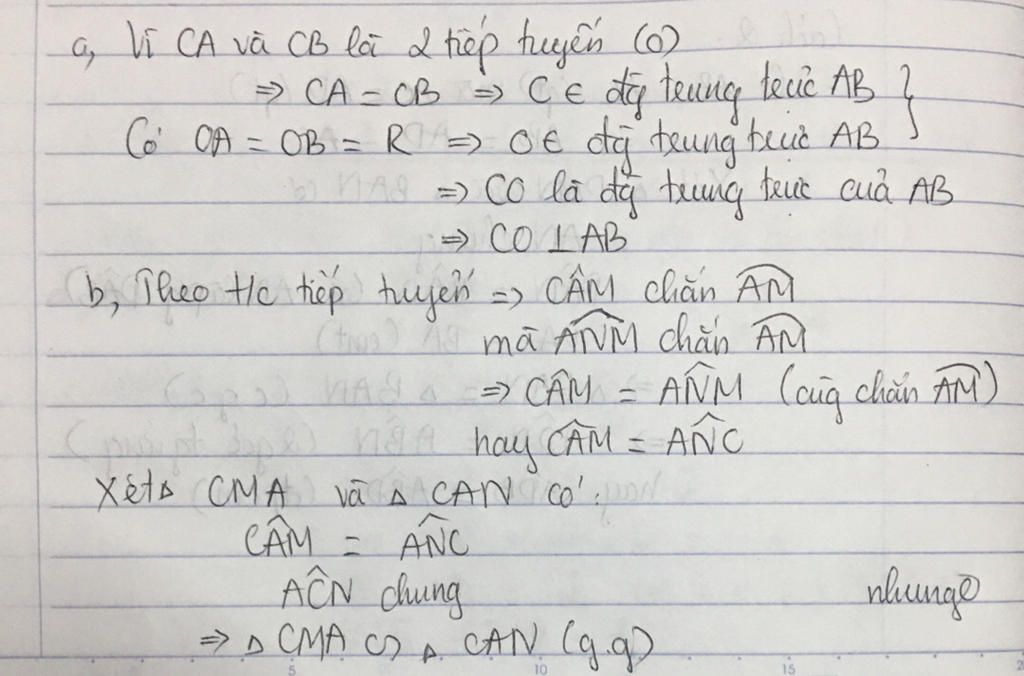 a, Vì CA và CB là 2 tiếp tuyến (O)
=> CA = CB => C ∈ đg trung trực AB }
Có OA = OB = R => O ∈ đg trung trực AB
=> CO là đg trung trực của AB
=> CO ⊥ AB
b, Theo t/c tiếp tuyến => CÂM chắn AM
mà AN̂M chắn AM
=> CÂM = AN̂M (cùg chắn AM)
hay CÂM = AN̂C
Xét Δ CMA và Δ CAN có:
CÂM = AN̂C
AĈN chung
nhung
=> Δ CMA ∽ Δ CAN (g.g)
5 10 15